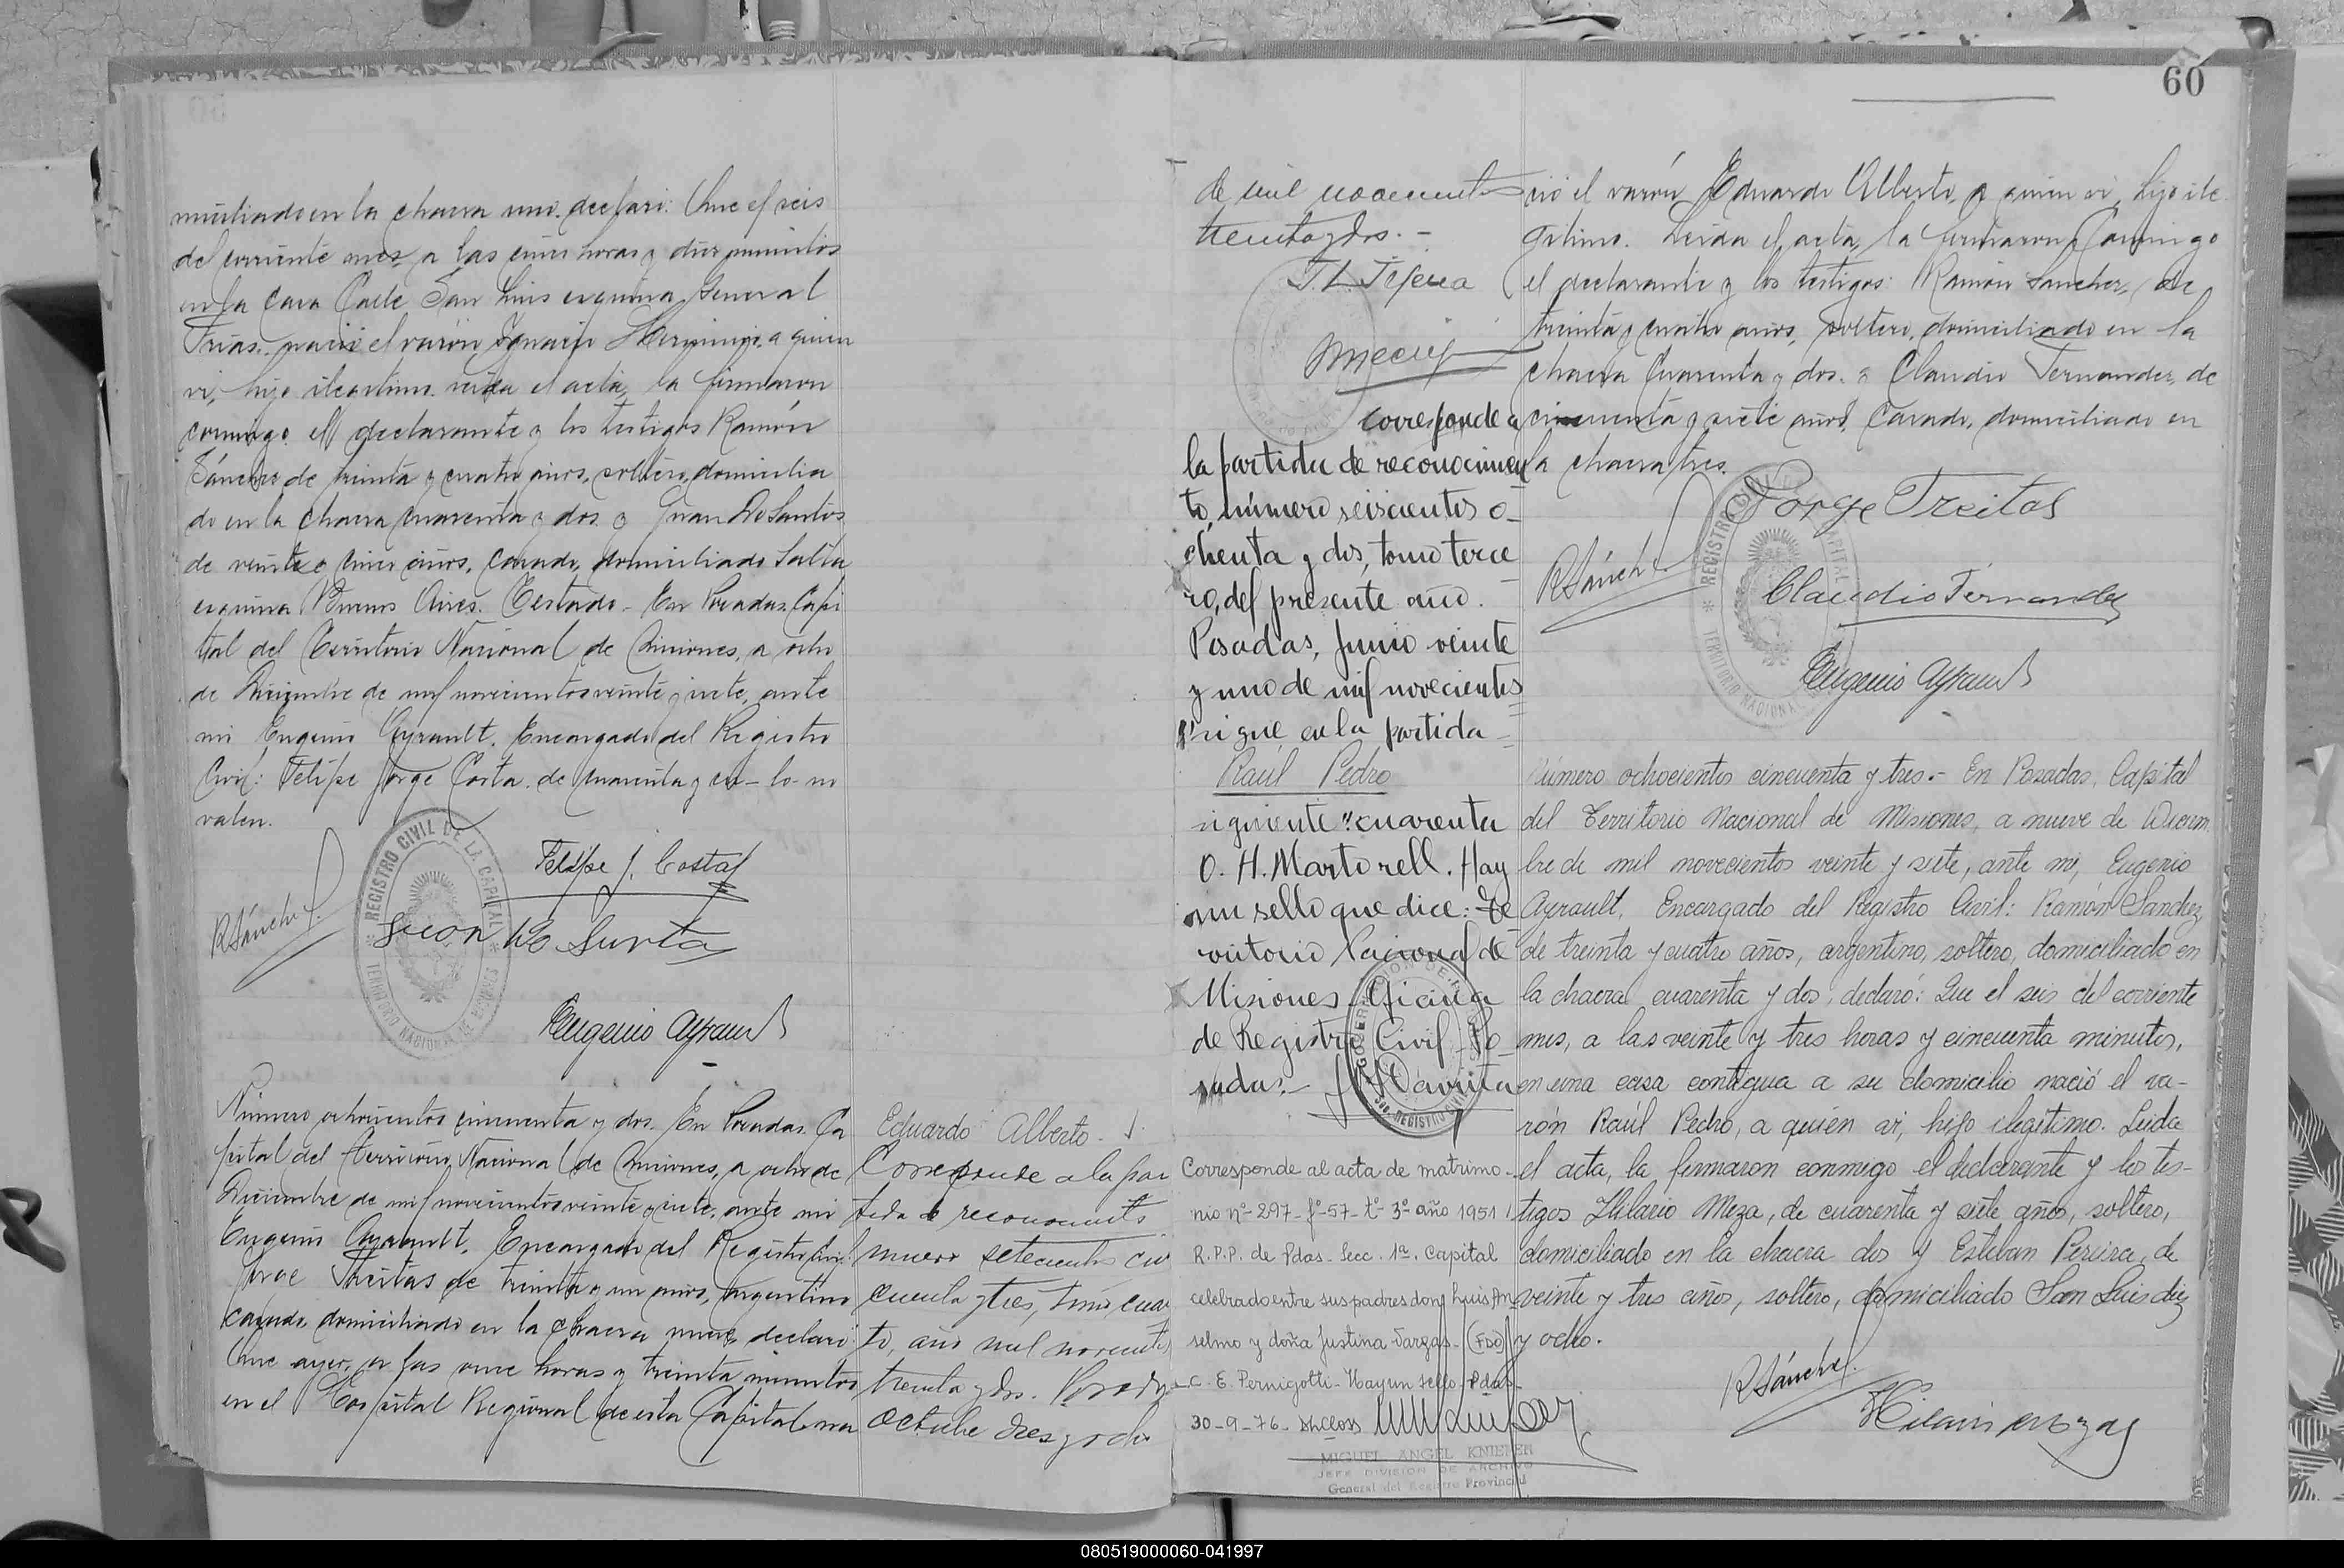 miciliado en la chacra uno, declaró: Que el seis
del corriente mes, a las cinco horas y diez minutos
en la casa Calle San Luis esquina General
Frias, nació el varón Ignacio Herminio, a quien
vi, hijo ilegítimo. Leida el acta, la firmaron
conmigo el declarante y los testigos Ramón
Sánchez de treinta y cuatro años, soltero, domicilia
do en la chacra cuarenta y dos y Juan Do Santos
de veinte y cinco años, casado, domiciliado Salta
esquina Buenos Aires. Testado - En Posadas, Capi
tal del Territorio Nacional de Misiones, a ocho
de Diciembre de mil novecientos veinte y siete, ante
mi Eugenio Ayrault, Encargado del Registro
Civil: Felipe Jorge Costa de cuarenta y un - lo - no
valen.
REGISTRO CIVIL DE LA CAPITAL
TERRITORIO NACIONAL DE MISIONES
Felipe J. Costa
RSánchez
Juan Do Santos
Eugenio Ayrault
Número ochocientos cincuenta y dos. En Posadas, Ca
pital del Territorio Nacional de Misiones, a ocho de
Diciembre de mil novecientos veinte y siete, ante mi
Eugenio Ayrault, Encargado del Registro Civil:
Jorge Freitas de treinta y un años, argentino
casado, domiciliado en la chacra nueve, declaró:
Que ayer, a las once horas y treinta minutos
en el Hospital Regional de esta Capital na
Eduardo Alberto.
Corresponde a la par
tida de reconocimto
numero setecientos cin
cuenta y tres, tomo cuar
to, año mil novecientos
treinta y dos. Posadas
Octubre diez y ocho
60
de mil novecientos
treinta y dos. -
T. L. Tejera
corresponde a
la partida de reconocimien
to, número seiscientos o-
chenta y dos, tomo terce
ro, del presente año.
Posadas, Junio veinte
y uno de mil novecientos
sigue en la partida
Raúl Pedro
siguiente "cuarenta
O. H. Martorell. Hay
un sello que dice: Te
rritorio Nacional de
Misiones Oficina
de Registro Civil Po
sadas. -
Corresponde al acta de matrimo-
nio nº 297 - fº 57 - tº 3º año 1951
R.P.P. de Pdas. Secc. 1ª. Capital
celebrado entre sus padres don Luis An
selmo y doña Justina Vargas - (FDO)
C. E. Pernigotti - Hay un sello - Pdas -
30-9-76.
MIGUEL ANGEL KNIEPER
JEFE DIVISION DE ARCHIVO
General del Registro Provincial
ció el varón Eduardo Alberto, a quien vi, hijo ile
gítimo. Leida el acta, la firmaron conmigo
el declarante y los testigos: Ramón Sánchez, de
treinta y cuatro años, soltero, domiciliado en la
chacra cuarenta y dos. y Claudio Fernandez, de
cincuenta y siete años, casado, domiciliado en
la chacra tres.
Jorge Freitas
RSánchez
Claudio Fernandez
REGISTRO CIVIL DE LA CAPITAL
TERRITORIO NACIONAL
Eugenio Ayrault
Número ochocientos cincuenta y tres. - En Posadas, Capital
del Territorio Nacional de Misiones, a nueve de Diciem
bre de mil novecientos veinte y siete, ante mi, Eugenio
Ayrault, Encargado del Registro Civil: Ramón Sánchez
de treinta y cuatro años, argentino, soltero, domiciliado en
la chacra cuarenta y dos, declaró: Que el seis del corriente
mes, a las veinte y tres horas y cincuenta minutos,
en una casa contigua a su domicilio nació el va-
rón Raúl Pedro, a quién vi, hijo ilegítimo. Leida
el acta, la firmaron conmigo el declarante y los tes-
tigos Hilario Meza, de cuarenta y siete años, soltero,
domiciliado en la chacra dos y Esteban Pereira, de
veinte y tres años, soltero, domiciliado San Luis diez
y ocho.
RSánchez
080519000060-041997